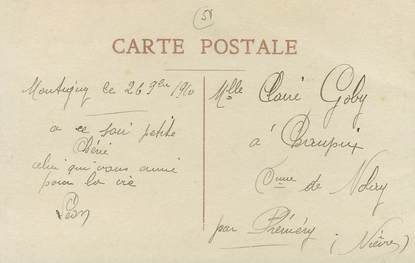 58
CARTE POSTALE
Montigny ce 26 9bre 1910
a ce soir petite
Chérie
celui qui vous aime
pour la vie
Léon
Mlle Claire Goby
à
Cmne de Nolay
par Prémery
(Nièvre)